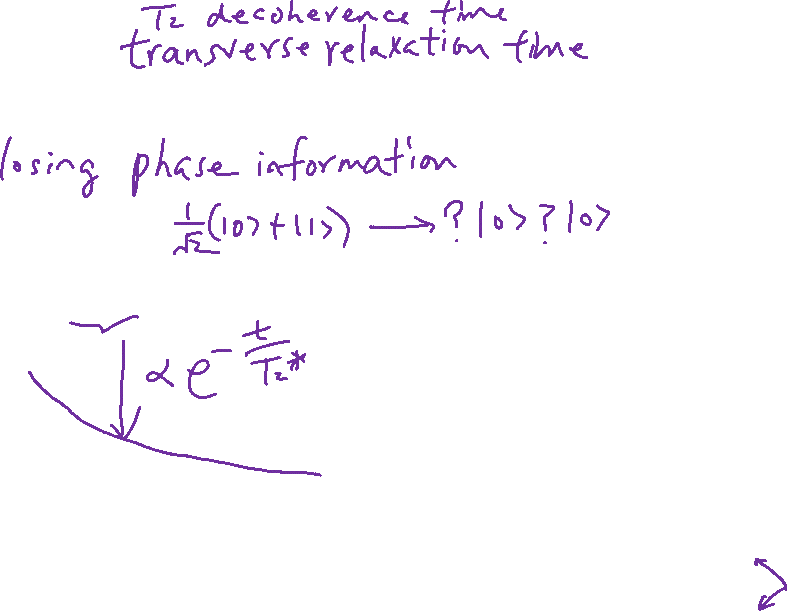 T₂ decoherence time
transverse relaxation time
losing phase information
1/√2(|0>+|1>) ⟶ ?|0>?|0>
∝ e^-t/T₂*